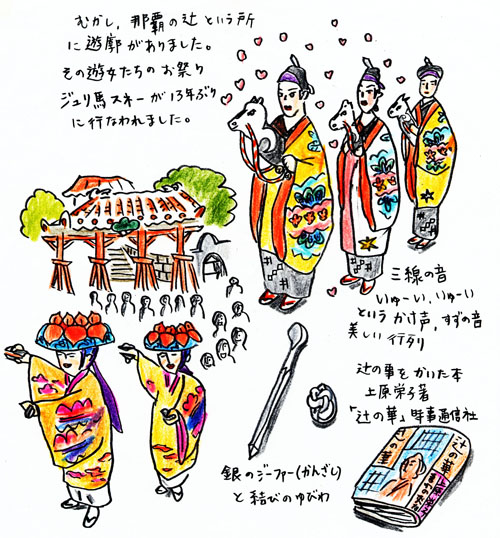 むかし、那覇の辻という所
に遊廓がありました。
その遊女たちのお祭り
ジュリ馬スネーが13年ぶり
に行なわれました。
三線の音
いゅーい、いゅーい
というかけ声、すずの音
美しい行列
辻の事をかいた本
上原栄子著
「辻の華」時事通信社
銀のジーファー(かんざし)
と結びのゆびわ
辻の華
辻の華
上原栄子